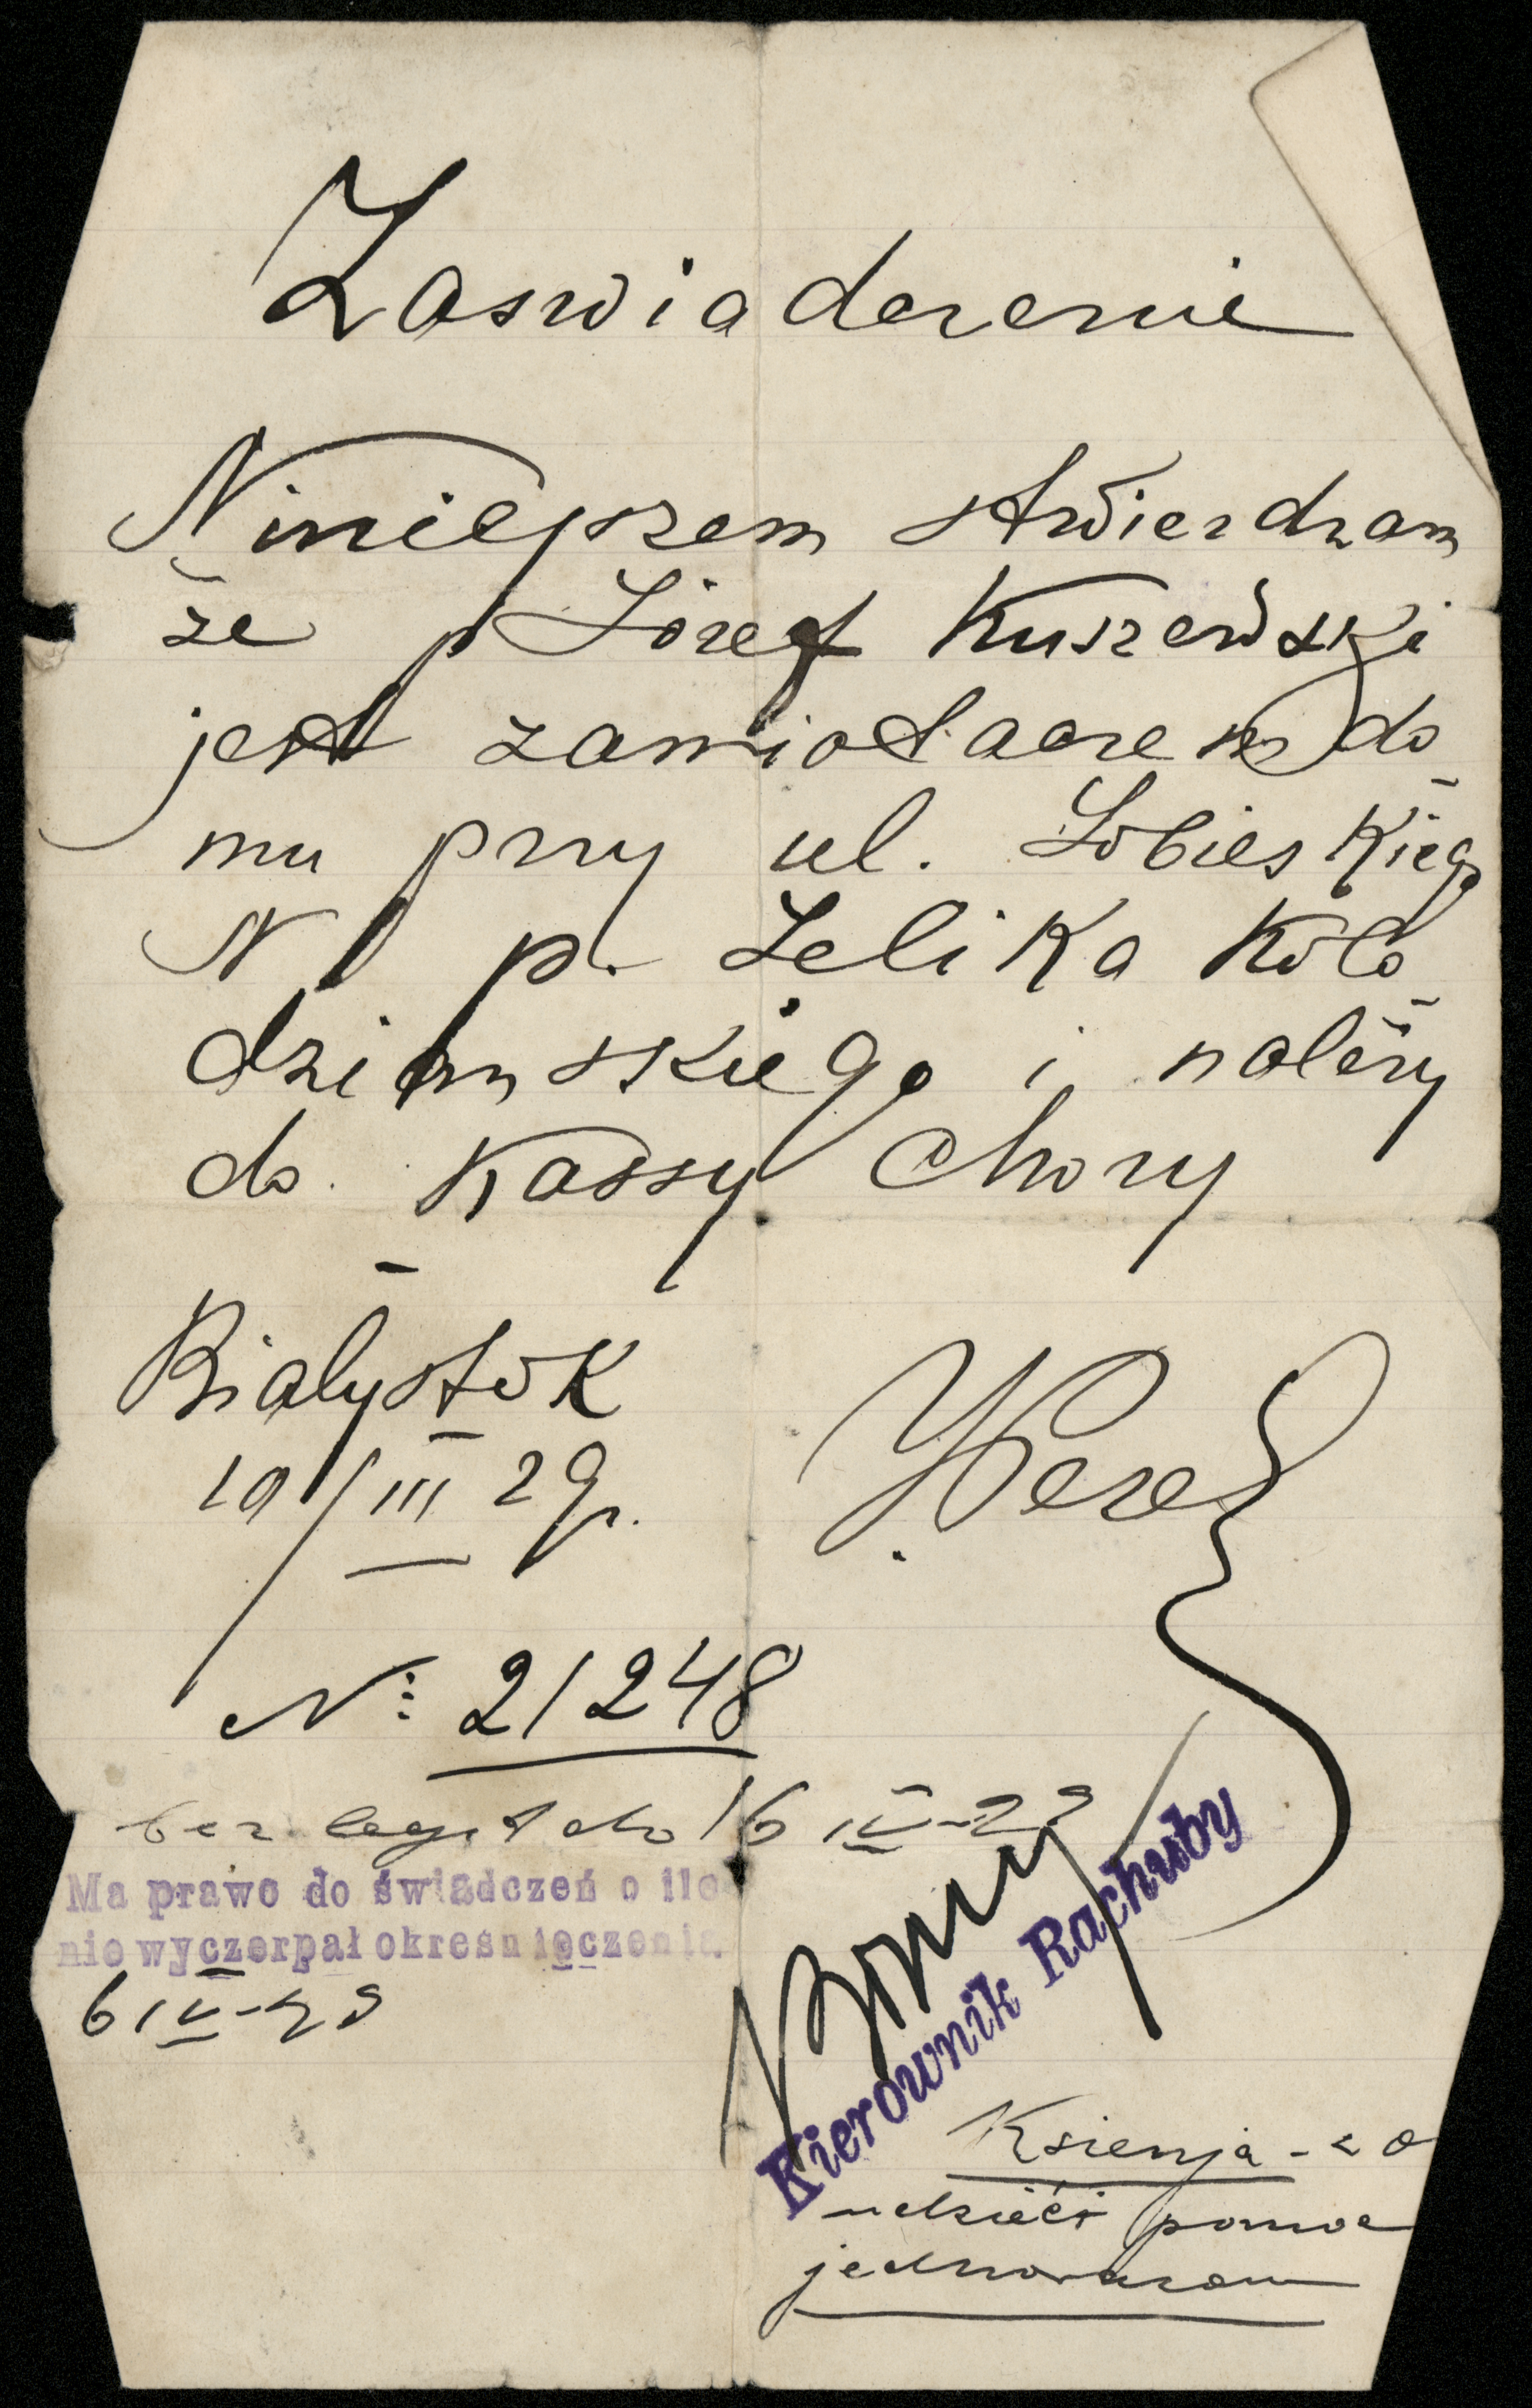 Zaswiadczenie
Niniejszem stwierdzam
że p Józef Kuszewski
jest zamiotaczem do
mu przy ul. Sobieskieg
N 1 p. Zelika Koło
dziańskiego i należy
do Kassy Chory
Białystok
10/III 29r.
№ 21248
bez legit do 16 IV-29
Ma prawo do świadczeń o ile
nie wyczerpał okresu leczenia
6 IV-29
Kierownik Rachuby
udzielić pomoc
jednorazow